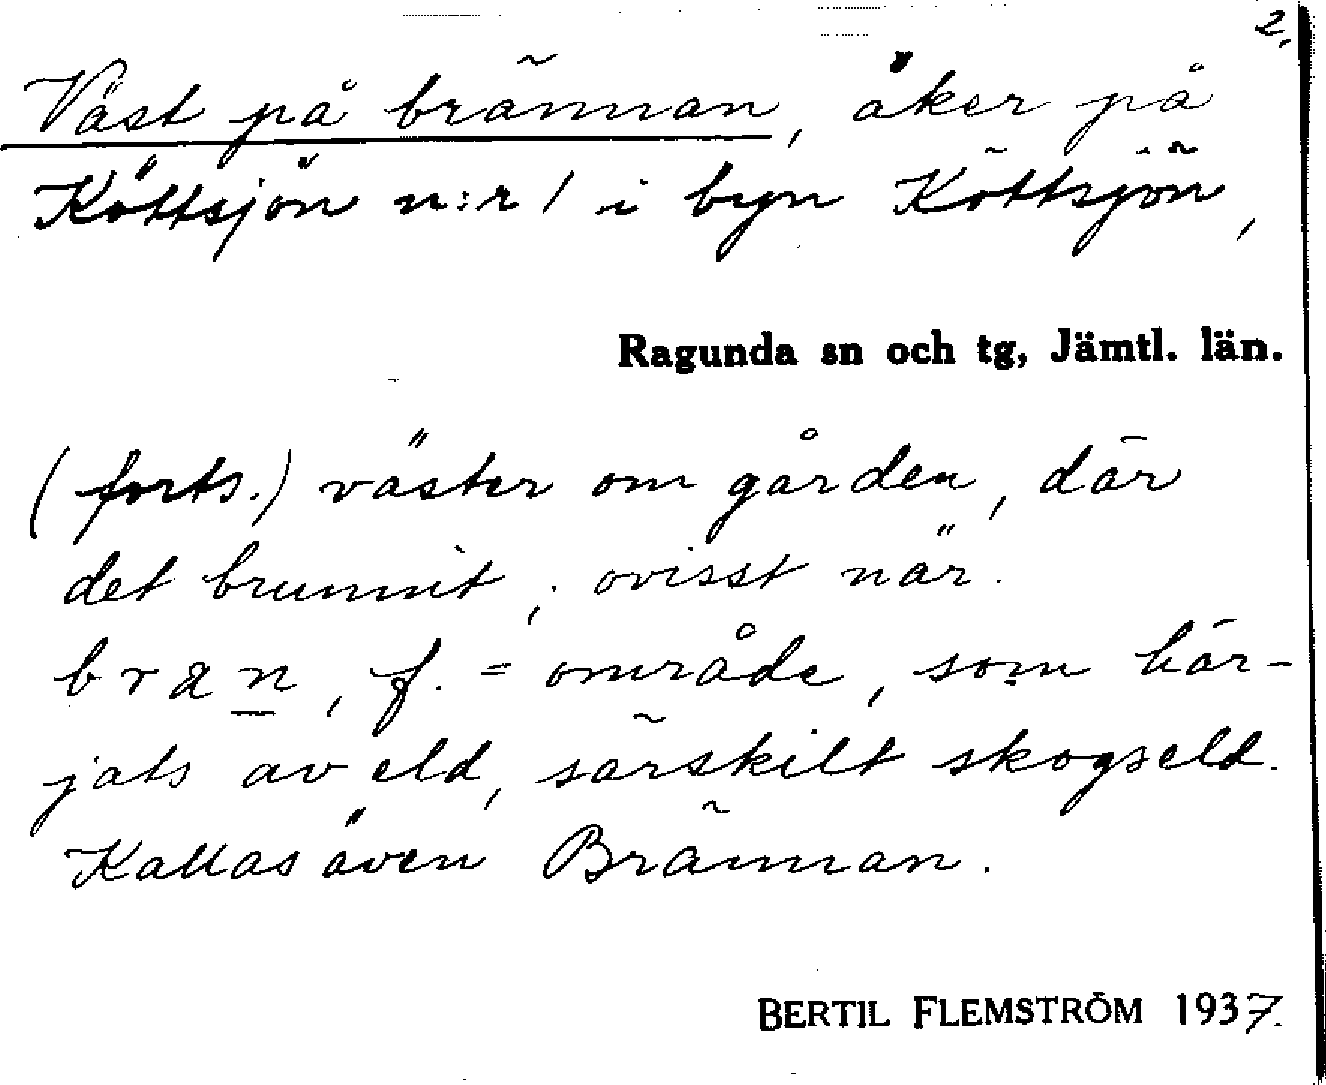 2.
Väst på brännan, åker på
Köttsjön n:r 1 i byn Köttsjön,
Ragunda sn och tg, Jämtl. län.
(forts.) väster om gården, där
det brunnit; ovisst när.
bran, f. = område, som här-
jats av eld, särskilt skogseld.
Kallas även Brännan.
BERTIL FLEMSTRÖM 1937.